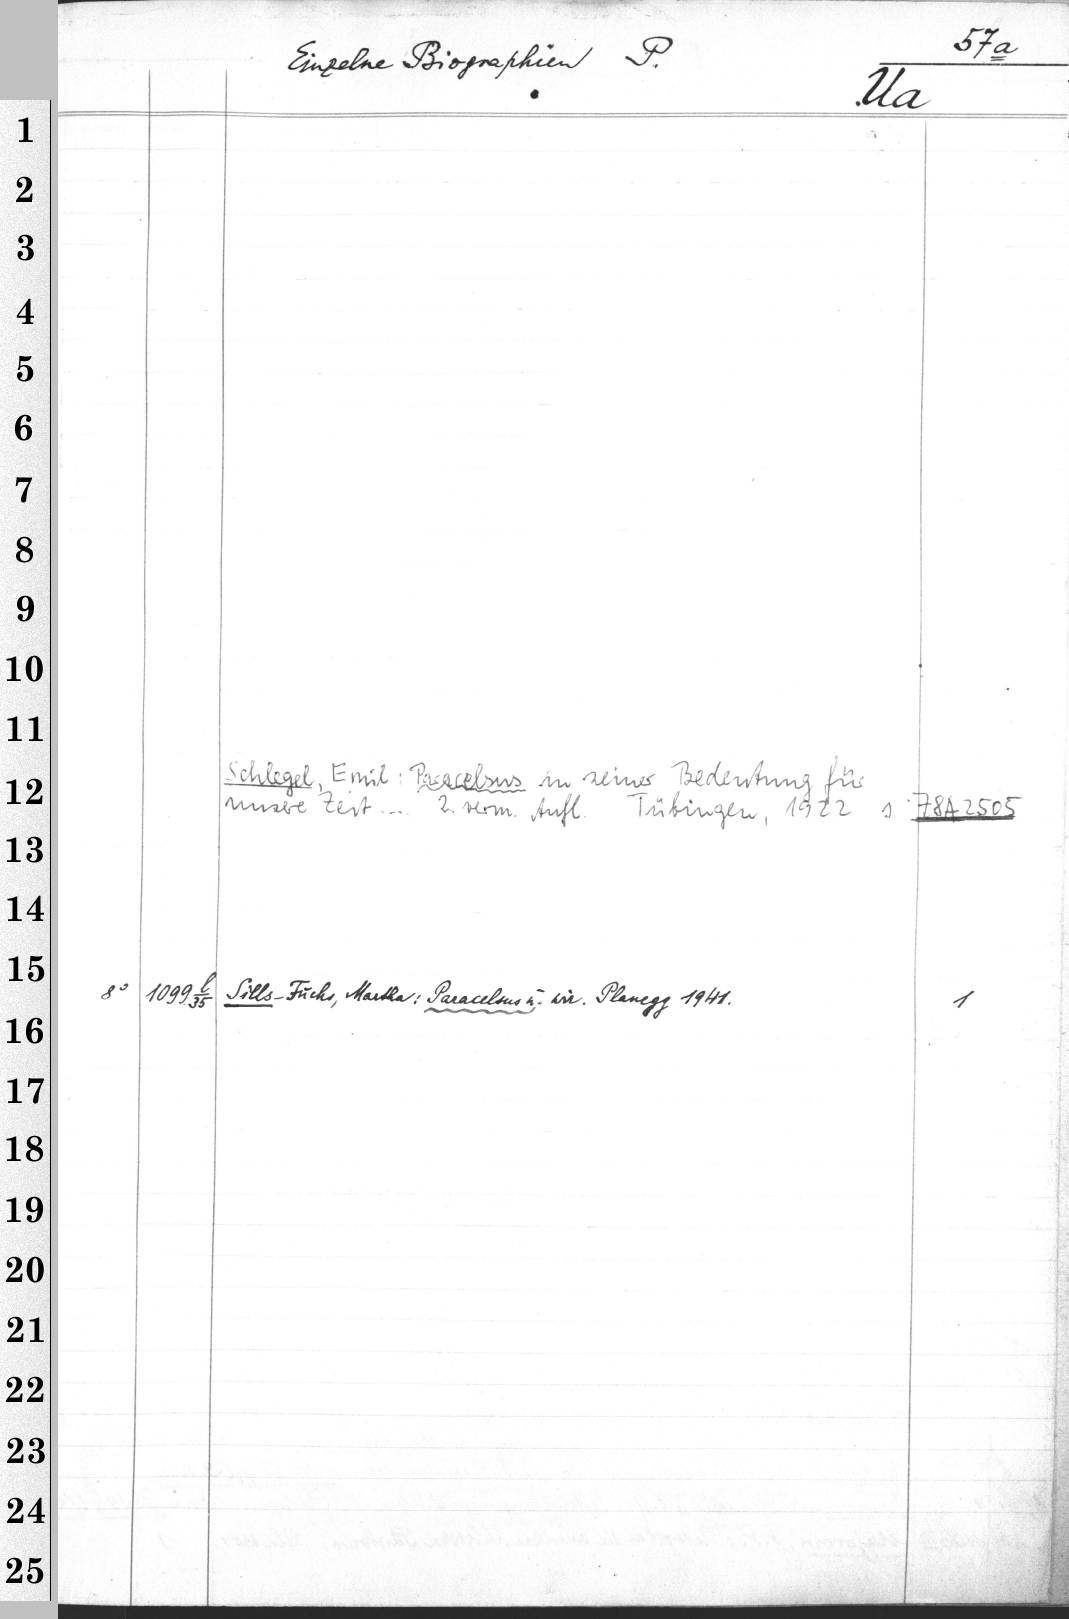 Einzelne Biographien P.
57a
Ua
1
2
3
4
5
6
7
8
9
10
11
12
13
14
15
16
17
18
19
20
21
22
23
24
25
Schlegel, Emil: Paracelsus in seiner Bedeutung für
unsere Zeit ... 2. verm. Aufl. Tübingen, 1922 s 78A2505
8° 1099 l/35 Sills-Fuchs, Martha: Paracelsus u. wir. Planegg 1941. 1